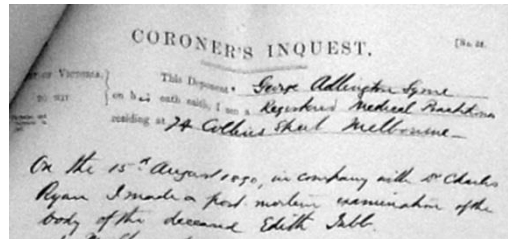 CORONER'S INQUEST.
[No. 28.
of Victoria,
This Deponent, George Adlington Syme
to wit
on his oath saith, I am a Registered Medical Practitioner
residing at 74 Collins Street Melbourne
On the 15th August 1890, in company with Dr Charles
Ryan I made a post mortem examination of the
body of the deceased Edith